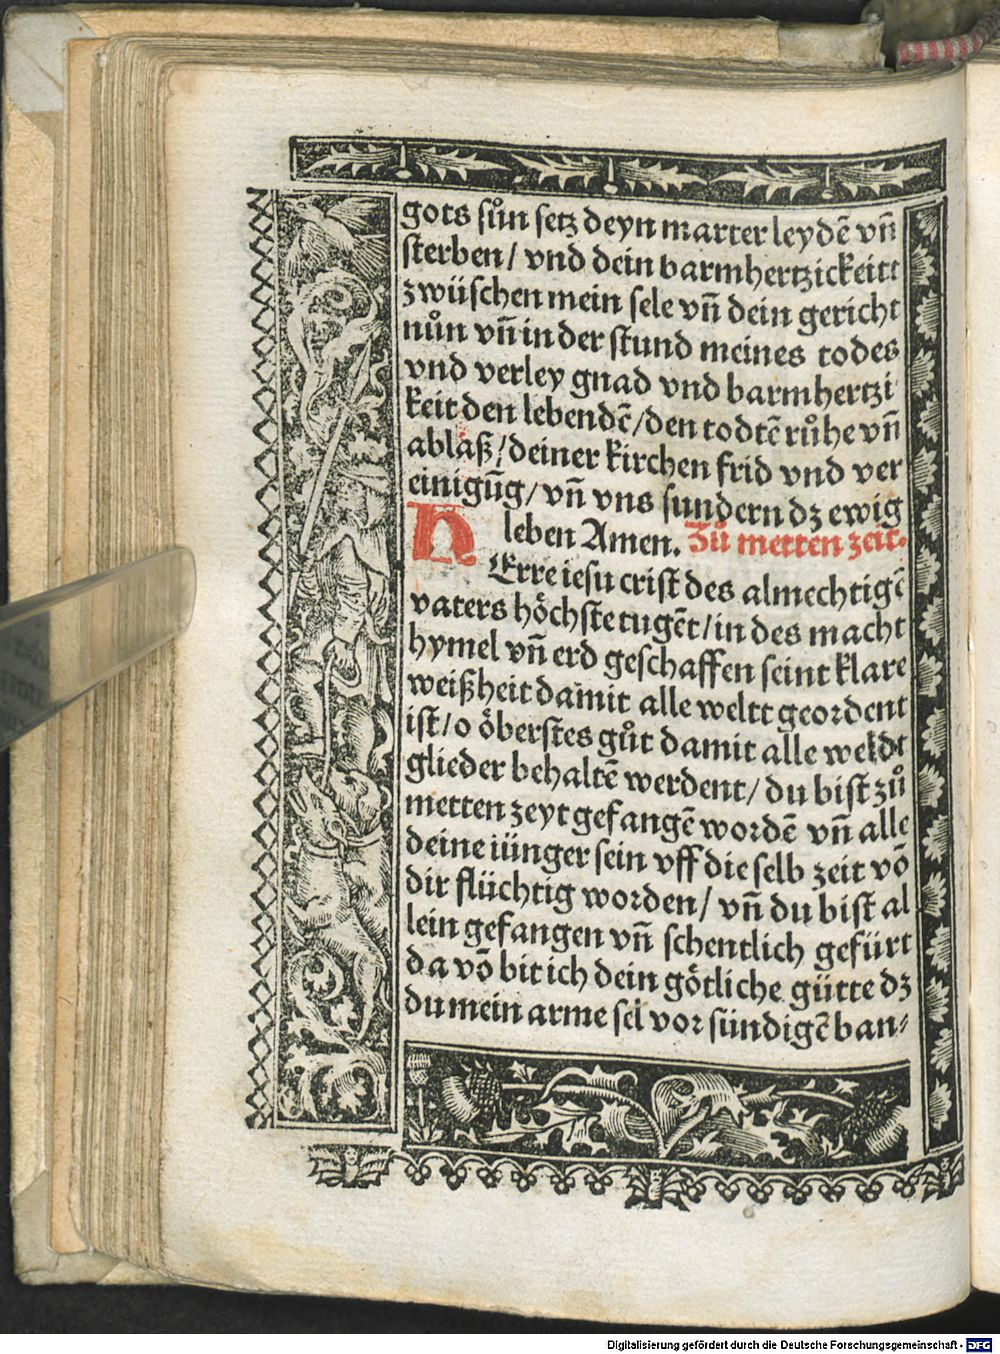 gots sůn setz deyn marter leydē vñ
sterben / vnd dein barmhertzickeitt
zwüschen mein sele vñ dein gericht
nůn vñ in der stund meines todes
vnd verley gnad vnd barmhertzi
keit den lebendē / den todtē růhe vñ
ablaß / deiner kirchen frid vnd ver
einigūg / vñ vns sundern dz ewig
leben Amen. Zů metten zeit.
HErre iesu crist des almechtigē
vaters höchste tugēt / in des macht
hymel vñ erd geschaffen seint klare
weißheit damit alle weltt geordent
ist / o öberstes gůt damit alle weldt
glieder behaltē werdent / du bist zů
metten zeyt gefangē wordē vñ alle
deine iünger sein vff die selb zeit vō
dir flüchtig worden / vñ du bist al
lein gefangen vñ schentlich gefürt
da vō bit ich dein götliche gütte dz
du mein arme sel vor sündigē ban⸗
Digitalisierung gefördert durch die Deutsche Forschungsgemeinschaft - DFG